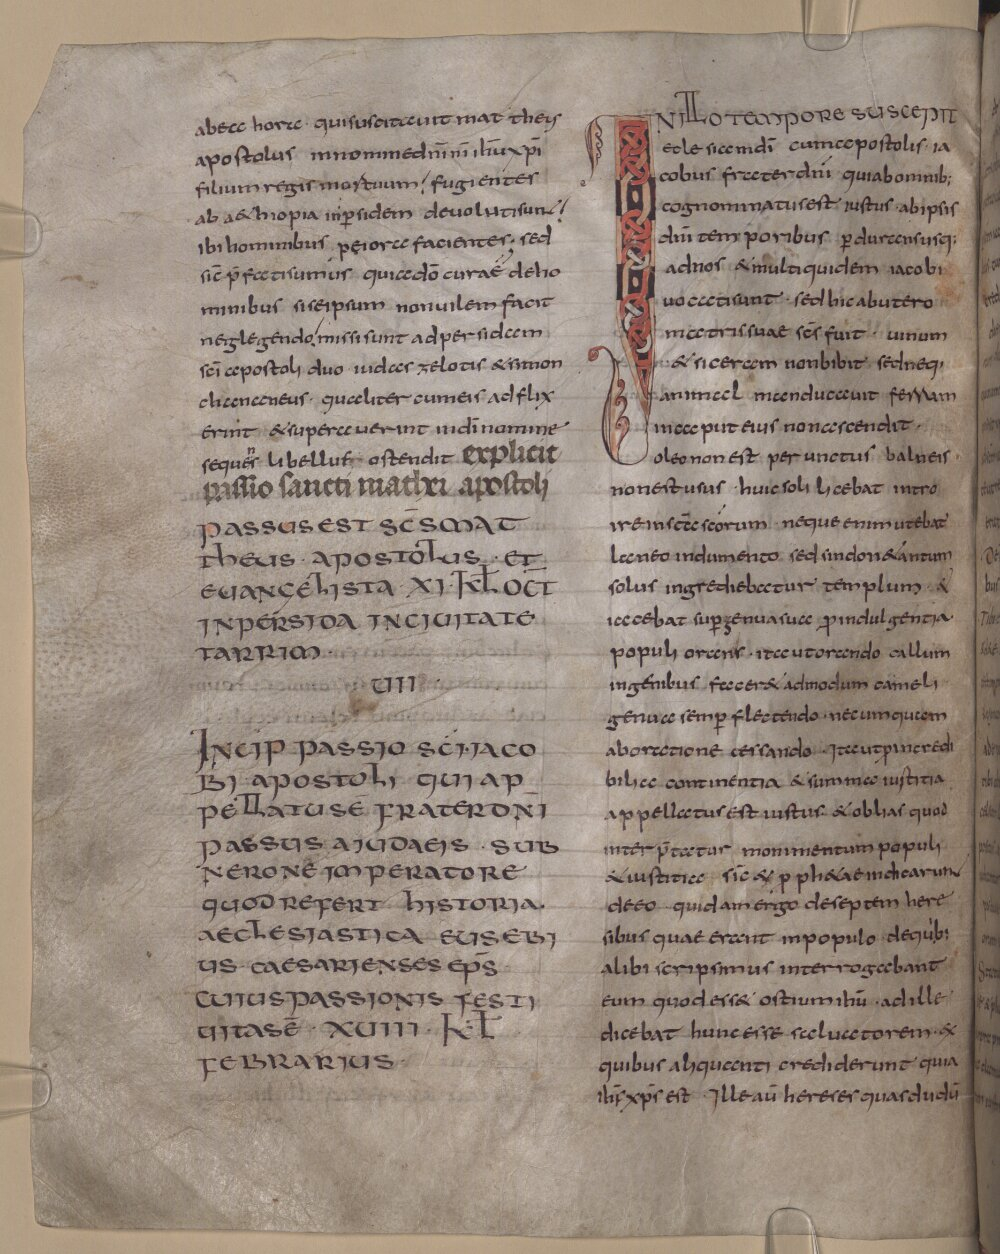 ab ea hora qua suscitauit mat theus
apostolus in nomine dn̄i nr̄i ih̄u xp̄i
filium regis mortuum / fugientes
ab aethiopia in persidem deuoluti sunt /
ibi hominibus peiora facientes · sed
sic̄ p̄fati sumus quia dō cura ē de ho
minibus si seipsum non uilem facit
neglegendo / missi sunt ad persidam
sc̄i apostoli duo iudas zelotis & simon
chananeus · qualiter cum eis adflix
erint & superauerint in dī nomine
sequens libellus ostendit explicit
passio sancti mathei apostoli
PASSUS EST SC̄S MAT
THEUS · APOSTOLUS · ET
EUANGELISTA · XI · KL̄ OCT̄
IN PERSIDA IN CIUITATE
TARRIUM ·
UIII ·
INCIP̄ PASSIO SC̄I · IACO
BI · APOSTOLI QUI AP
PELLATUS Ē FRATER DN̄I
PASSUS A IUDAEIS · SUB
NERONE IMPERATORE
QUOD REFERT HISTORIA ·
AECLESIASTICA EUSEBI
US · CAESARIENSES EP̄S ·
CUIUS PASSIONIS FESTI
UITAS Ē · XUIII · KL̄
FEBRARIUS ·
IN ILLO TEMPORE SUSCEPIT
eclesiam dī cum apostolis ia
cobus frater dn̄i qui ab omnib;
cognominatus est iustus · ab ipsis
dn̄i temporibus perduransusq;
ad nos & multi quidem iacobi
uocati sunt · sed hic ab utero
matris suae sc̄s fuit · uinum
& siceram non bibit sed neq;
animal manducauit ferrum
in caput eius non ascendit ·
oleo non est perunctus balneis ·
non est usus · huic soli licebat intro
ire in sc̄a sc̄orum · neque enim utebat
laneo indumento sed sindone & tantum
solus ingrediebatur templum · &
iacebat super genua sua pro indulgentia
populi orans · ita ut orando callum
in genibus faceret ad modum cameli ·
genua semper flectendo · nec umquam
ab oratione cessando · ita ut pro incredi
bilia continentia & summa iustitia
appellatus est iustus · & oblias quod
interp̄tatur monimentum populi
& iustitia sic̄ & prophetae indicarunt
de eo · quidam ergo de septem here
sibus quae erant in populo de quibus
alibi scripsimus interrogabant
eum quod esset ostium ih̄u · ad ille
dicebat hunc esse saluatorem · ex
quibus aliquanti crediderunt quia
ih̄s xp̄s est · Ille aū hereses quas dudū